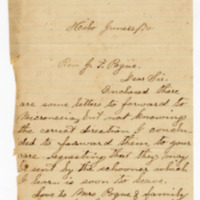 Hilo June 15/70
Rev. J. F. Pogue.
Dear Sir.
Enclosed there
are some letters to forward to
Micronesia, but not knowing
the correct direction I conclu-
ded to forward them, to your
care. requesting that they may
be sent by the schooner which
I learn is soon to leave.
Love to Mrs Pogue & family